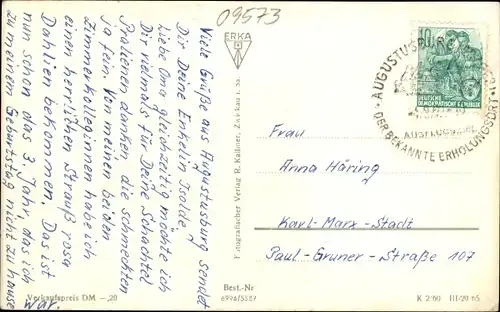 09573
ERKA
Viele Grüße aus Augustusburg sendet
Dir Deine Enkelin Isolde.
Liebe Oma gleichzeitig möchte ich
Dir vielmals für Deine Schachtel
Pralienen danken die schmeckten
ja fein. Von meinen beiden
Zimmerkolleginnen habe ich
einen herrlichen Strauß rosa
Dahlien bekommen. Das ist
nun schon das 3. Jahr, das ich
zu meinem Geburtstag nicht zu hause
war.
Fotografischer Verlag R. Kallmer, Zwickau i. Sa.
10
DEUTSCHE
DEMOKRATISCHE REPUBLIK
AUGUSTUSBURG
AUSFLUGSZIEL
DER BEKANNTE ERHOLUNGSORT
Frau
Anna Häring
Karl-Marx-Stadt
Paul-Gruner-Straße 107
Verkaufspreis DM -,20
Best.-Nr
6994/5587
K 2/60 III-20-65